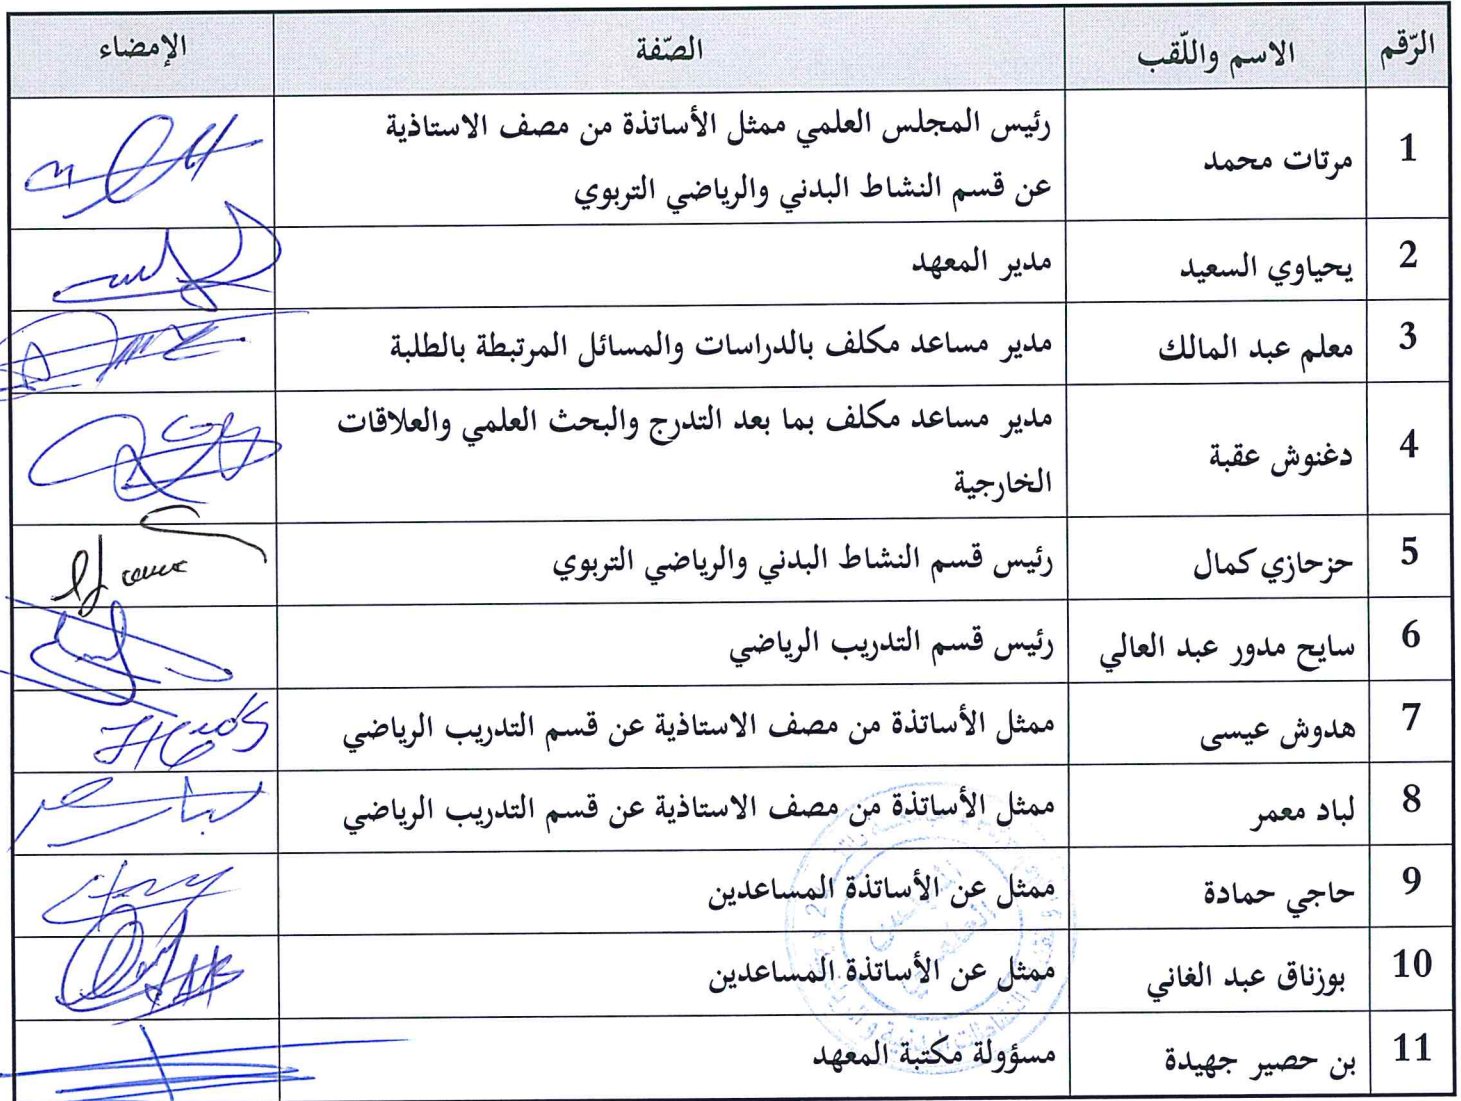 الرّقم الاسم واللّقب الصّفة الإمضاء
1 مرتات محمد رئيس المجلس العلمي ممثل الأساتذة من مصف الاستاذية
عن قسم النشاط البدني والرياضي التربوي
2 يحياوي السعيد مدير المعهد
3 معلم عبد المالك مدير مساعد مكلف بالدراسات والمسائل المرتبطة بالطلبة
4 دغنوش عقبة مدير مساعد مكلف بما بعد التدرج والبحث العلمي والعلاقات
الخارجية
5 حزحازي كمال رئيس قسم النشاط البدني والرياضي التربوي
6 سايح مدور عبد العالي رئيس قسم التدريب الرياضي
7 هدوش عيسى ممثل الأساتذة من مصف الاستاذية عن قسم التدريب الرياضي
8 لباد معمر ممثل الأساتذة من مصف الاستاذية عن قسم التدريب الرياضي
9 حاجي حمادة ممثل عن الأساتذة المساعدين
10 بوزناق عبد الغاني ممثل عن الأساتذة المساعدين
11 بن حصير جهيدة مسؤولة مكتبة المعهد